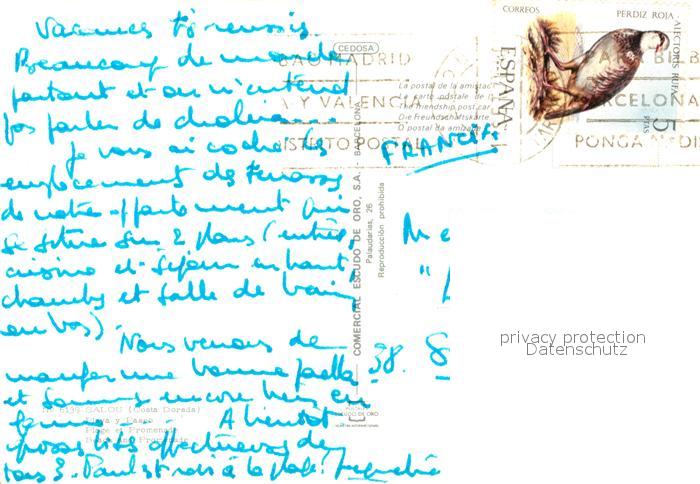 Vacances très réussis.
Beaucoup de monde
partout et on n'entend
pas parler de choléra...
Je vous ai coché les
emplacement des terrasses
de notre appartement qui
se situe sur 2 plans (entrée,
cuisine et séjour en haut,
chambres et salle de bain
en bas).
Nous venons de
manger une bonne paella
et sommes encore bien en
A bientôt
affectueuses de
tous 3. Paul est ravi de la plage!
CEDOSA
La postal de la amistad
La carte postale de l'
The friendship post car
Die Freundschaftskarte
O postal da amizad
COMERCIAL ESCUDO DE ORO, S.A. BARCELONA
Palaudarias, 26
Reproducción prohibida
6139 SALOU (Costa Dorada)
Playa y Paseo
Plage et Promenade
CORREOS
PERDIZ ROJA - ALECTORIS RUFA
ESPAÑA
5 PTAS
MADRID
A Y VALENCI
DISTRITO POSTAL
BARCELONA
PONGA
FRANCIA
M
"
38.
privacy protection
Datenschutz